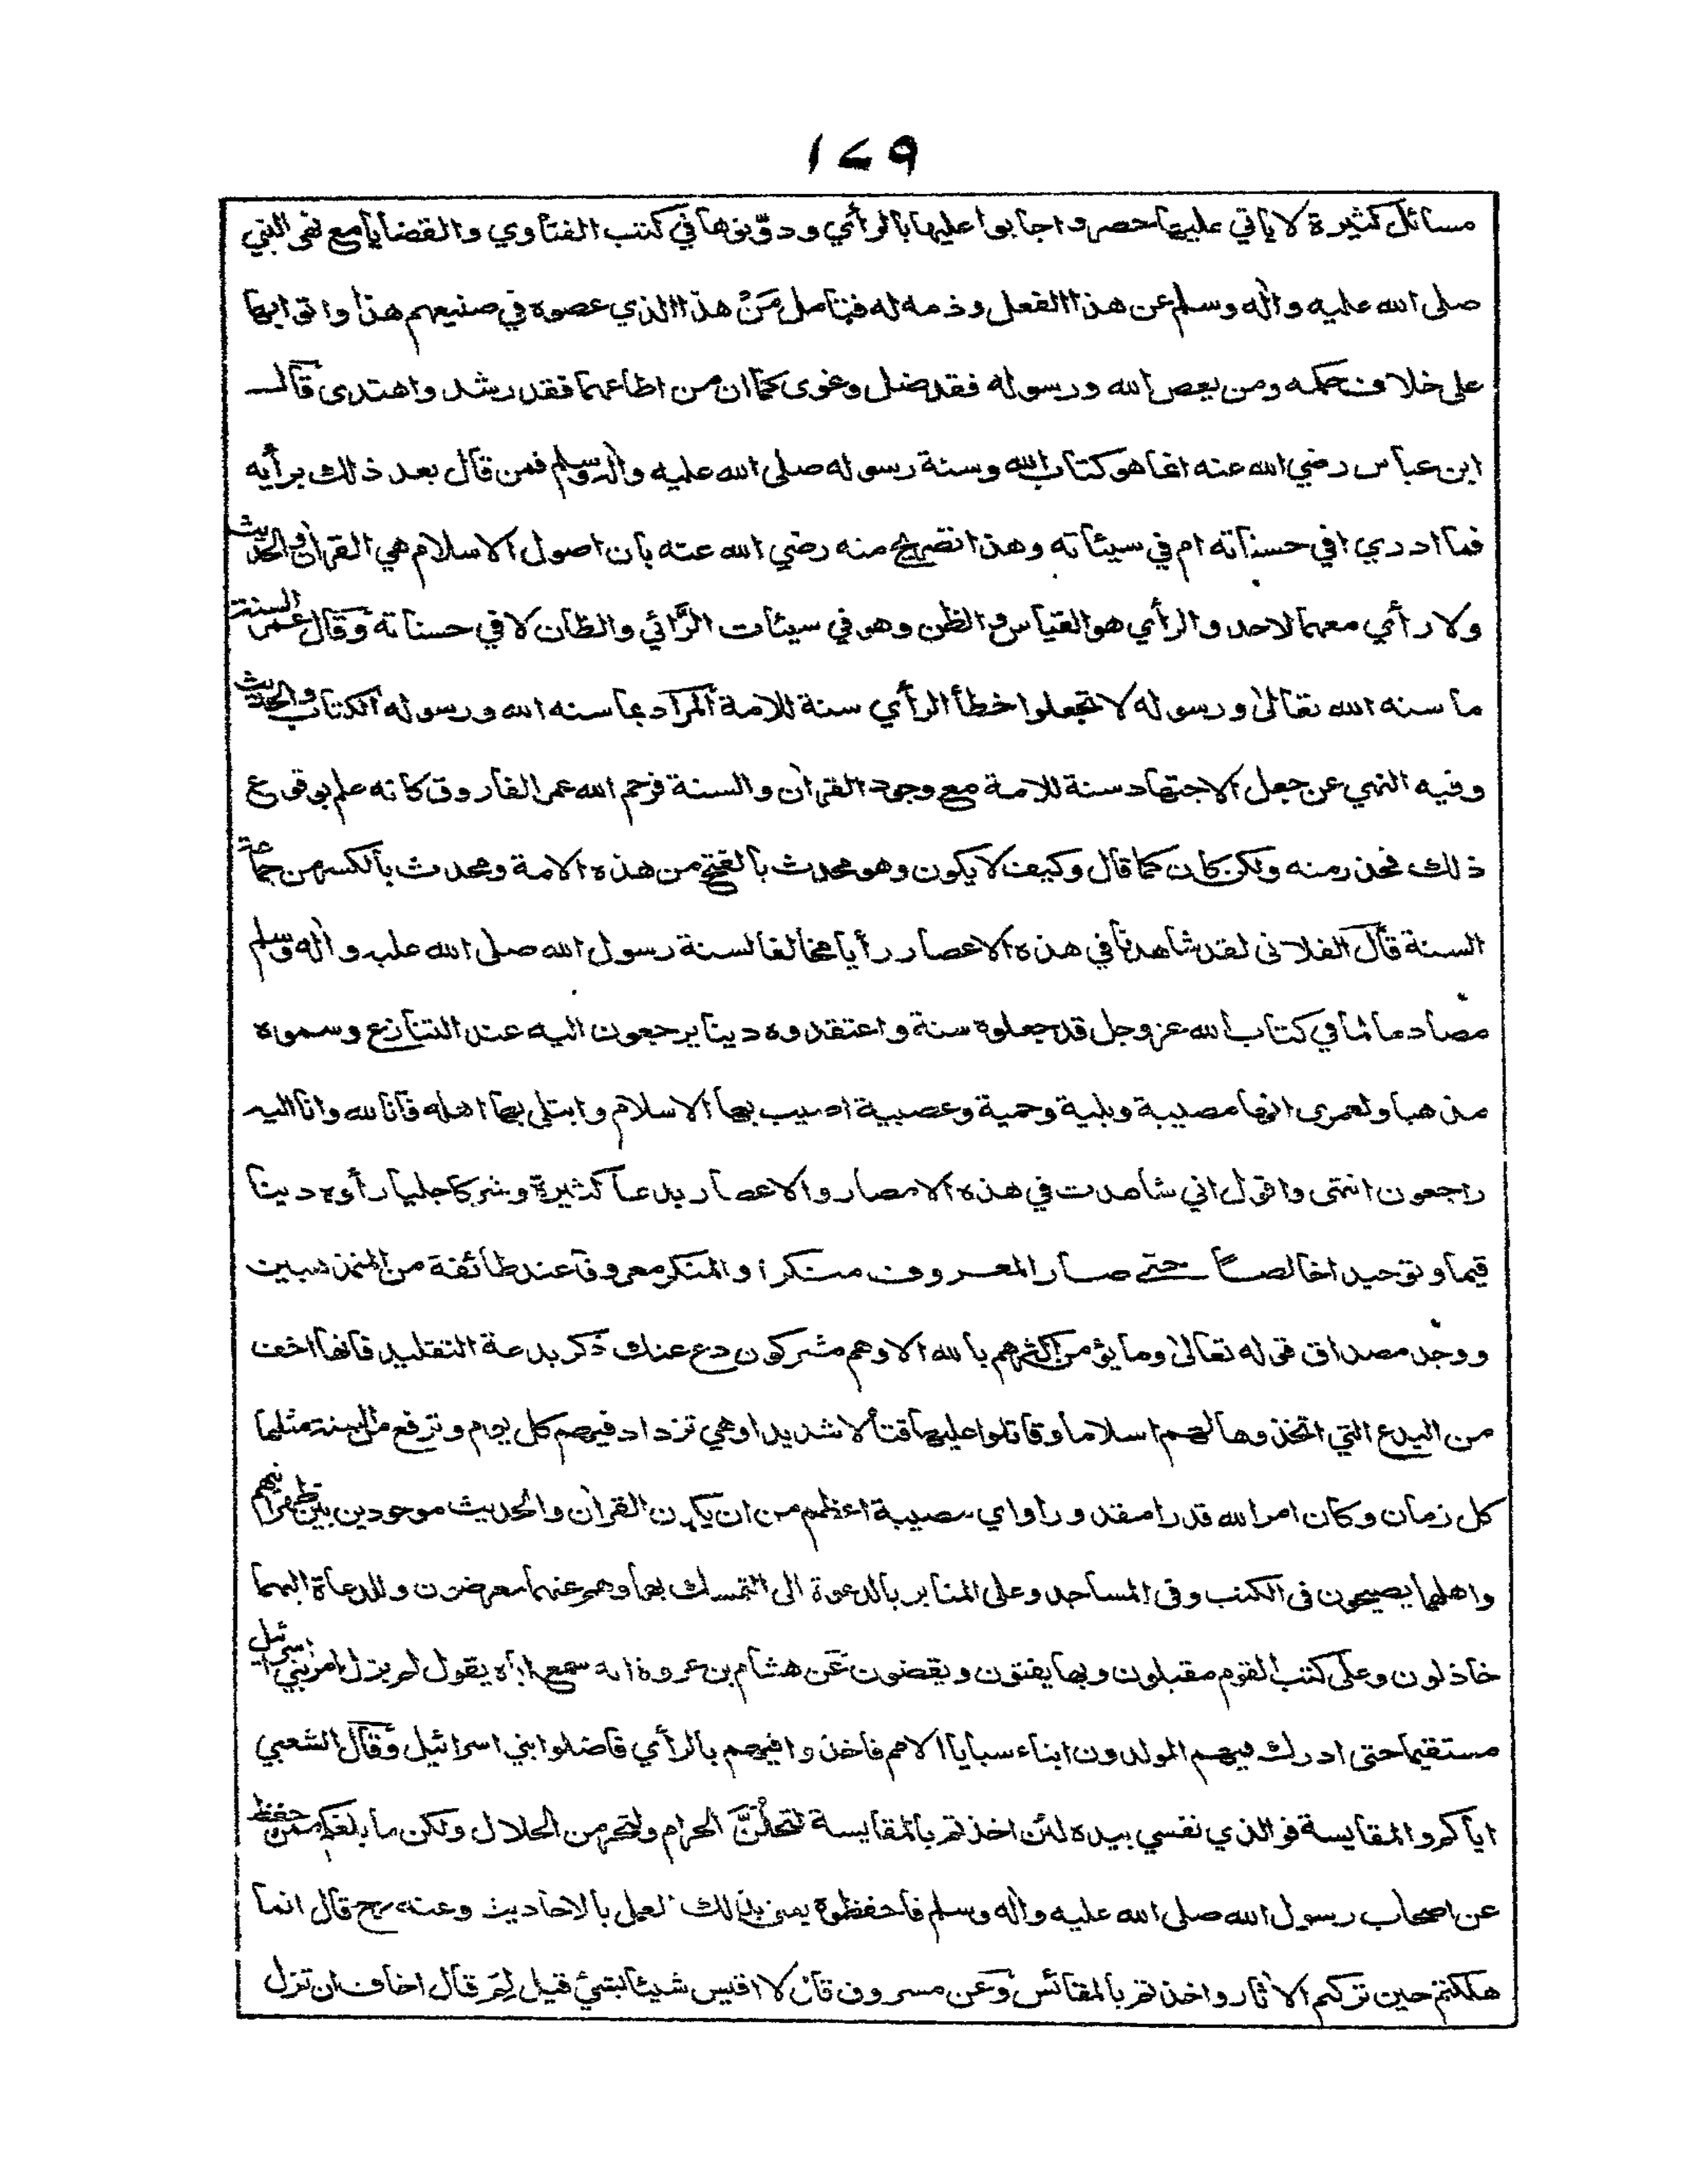 ١٧٩
مسائل كثيرة لا ياتي عليها حصر واجابوا عليها بالرأي ودوّنوها في كتب الفتاوي والقضايا مع نهى النبي
صلى الله عليه واٰله وسلم عن هذا الفعل وذمه له فتأمل مَنْ هذا الذي عصوه في صنيعهم هذا واتوا بها
على خلاف حكمه ومن يعص الله ورسوله فقد ضل وغوى كما ان من اطاعهما فقد رشد واهتدى قال
ابن عباس رضي الله عنه انما هو كتاب الله وسنة رسوله صلى الله عليه واٰله وسلم فمن قال بعد ذلك برأيه
فما ادري افي حسناته ام في سيئاته وهذا تصريح منه رضي الله عنه بان اصول الاسلام هي القراٰن والحديث
ولا رأي معهما لاحد والرأي هو القياس والظن وهو في سيئات الرَّائي والظان لا في حسناته وقال عمر السنة
ما سنه الله تعالىٰ ورسوله لا تجعلوا خطأ الرأي سنة للامة المراد بما سنه الله ورسوله الكتاب والحديث
وفيه النهي عن جعل الاجتهاد سنة للامة مع وجود القراٰن والسنة فرحم الله عمر الفاروق كانه علم بوقوع
ذلك فحذر منه ولكن كان كما قال وكيف لا يكون وهو محدث بالفتح من هذه الامة ومحدث بالكسر من جماعة
السنة قال الفلانى لقد شاهدنا في هذه الاعصار رأيا مخالفا لسنة رسول الله صلى الله عليه واٰله وسلم
مصادما لما في كتاب الله عز وجل قد جعلوه سنة واعتقدوه دينا يرجعون اليه عند التنازع وسموه
مذهبا ولعمرى انها مصيبة وبلية وحمية وعصبية اصيب بها الاسلام وابتلى بها اهله فانا لله وانا اليه
راجعون انتهى واقول اني شاهدت في هذه الامصار والاعصار بدعا كثيرة وشركا جليا رأوه دينا
قيما وتوحيدا خالصا حتى صار المعروف منكرا والمنكر معروفا عند طائفة من المتمذهبين
ووجد مصداق قوله تعالىٰ وما يؤمن اكثرهم بالله الا وهم مشركون دع عنك ذكر بدعة التقليد فانها اخف
من البدع التي اتخذوها لهم اسلاما وقاتلوا عليها قتالا شديدا وهي تزداد فيهم كل يوم وترفع من السنة مثلها
كل زمان وكان امر الله قدرا مقدورا واي مصيبة اعظم من ان يكون القراٰن والحديث موجودين بين ظهرانيهم
واهلهما يصيحون فى الكتب وفى المساجد وعلى المنابر بالدعوة الى التمسك بهما وهم عنهما معرضون وللدعاة اليهما
خاذلون وعلى كتب القوم مقبلون وبها يفتون ويقضون عن هشام بن عروة انه سمع اباه يقول لم يزل امر بني اسرائيل
مستقيما حتى ادرك فيهم المولدون ابناء سبايا الامم فاخذوا فيهم بالرأي فاضلوا بني اسرائيل وقال الشعبي
اياكم والمقايسة فوالذي نفسي بيده لئن اخذتم بالمقايسة لتحلُّنَّ الحرام ولتحرمن الحلال ولكن ما بلغكم ممن حفظ
عن اصحاب رسول الله صلى الله عليه واٰله وسلم فاحفظوه يعنى بذلك العمل بالاحاديث وعنه رح قال انما
هلكتم حين تركتم الاٰثار واخذتم بالمقائس وعن مسروق قال لا اقيس شيئا بشيئ قيل لِمَ قال اخاف ان تزل